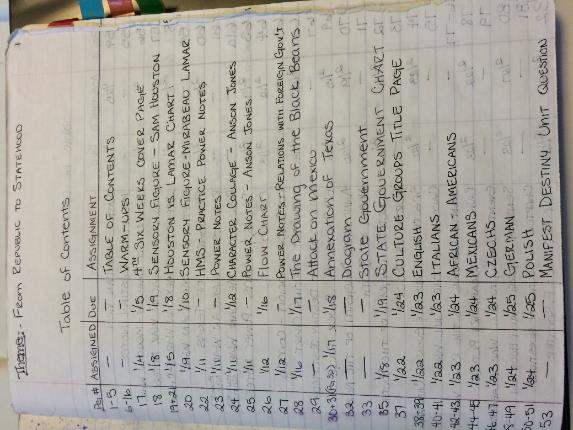 Theme: - From REPUBLIC TO STATEHOOD
Table of Contents
Pg.# ASSIGNED DUE ASSIGNMENT
1-5 — — TABLE OF CONTENTS
6-16 — — WARM-UPS
17 1/4 1/5 4TH SIX WEEKS COVER PAGE
18 1/8 1/9 SENSORY FIGURE - SAM HOUSTON
19+21 1/5 1/8 HOUSTON VS LAMAR CHART
20 1/9 1/10 SENSORY FIGURE - MIRABEAU LAMAR
22 1/11 — HMS - PRACTICE POWER NOTES
23 1/11 — POWER NOTES
24 1/11 1/12 CHARACTER COLLAGE - ANSON JONES
25 1/11 — POWER NOTES - ANSON JONES
26 1/12 1/16 FLOW CHART
27 1/12 — POWER NOTES - RELATIONS WITH FOREIGN GOV'T
28 1/16 1/17 The Drawing of the Black Beans
29 — — Attack on Mexico
30+31 1/17 1/18 Annexation of Texas
32 — — Diagram
33 — — State Government
35 1/18 1/19 STATE GOVERNMENT CHART
37 1/22 1/24 CULTURE GROUPS TITLE PAGE
38+39 1/22 1/23 ENGLISH
40-41 1/22 1/23 ITALIANS
42-43 1/23 1/24 AFRICAN - AMERICANS
44-45 1/23 1/24 MEXICANS
46-47 1/23 1/24 CZECHS
8-49 1/24 1/25 GERMAN
50-51 1/24 1/25 POLISH
53 — — MANIFEST DESTINY UNIT QUESTION